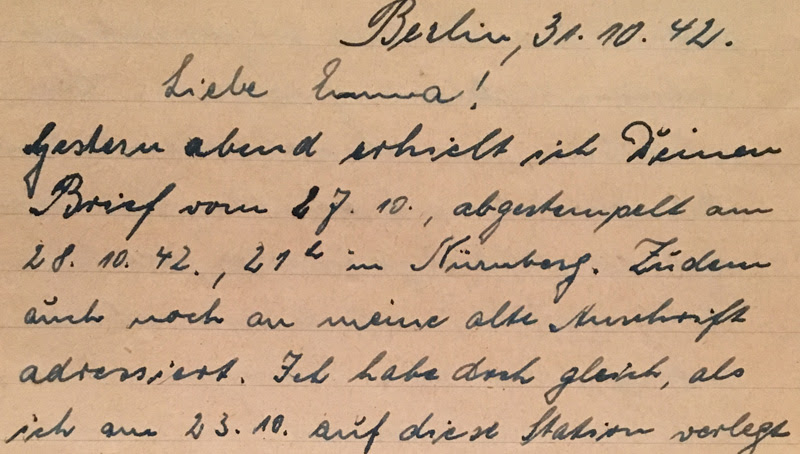 Berlin, 31.10.42.
Liebe Emma!
Gestern abend erhielt ich Deinen
Brief vom 27.10., abgestempelt am
28.10.42., 21h in Nürnberg. Zudem
auch noch an meine alte Anschrift
adressiert. Ich habe doch gleich, als
ich am 23.10. auf diese Station verlegt